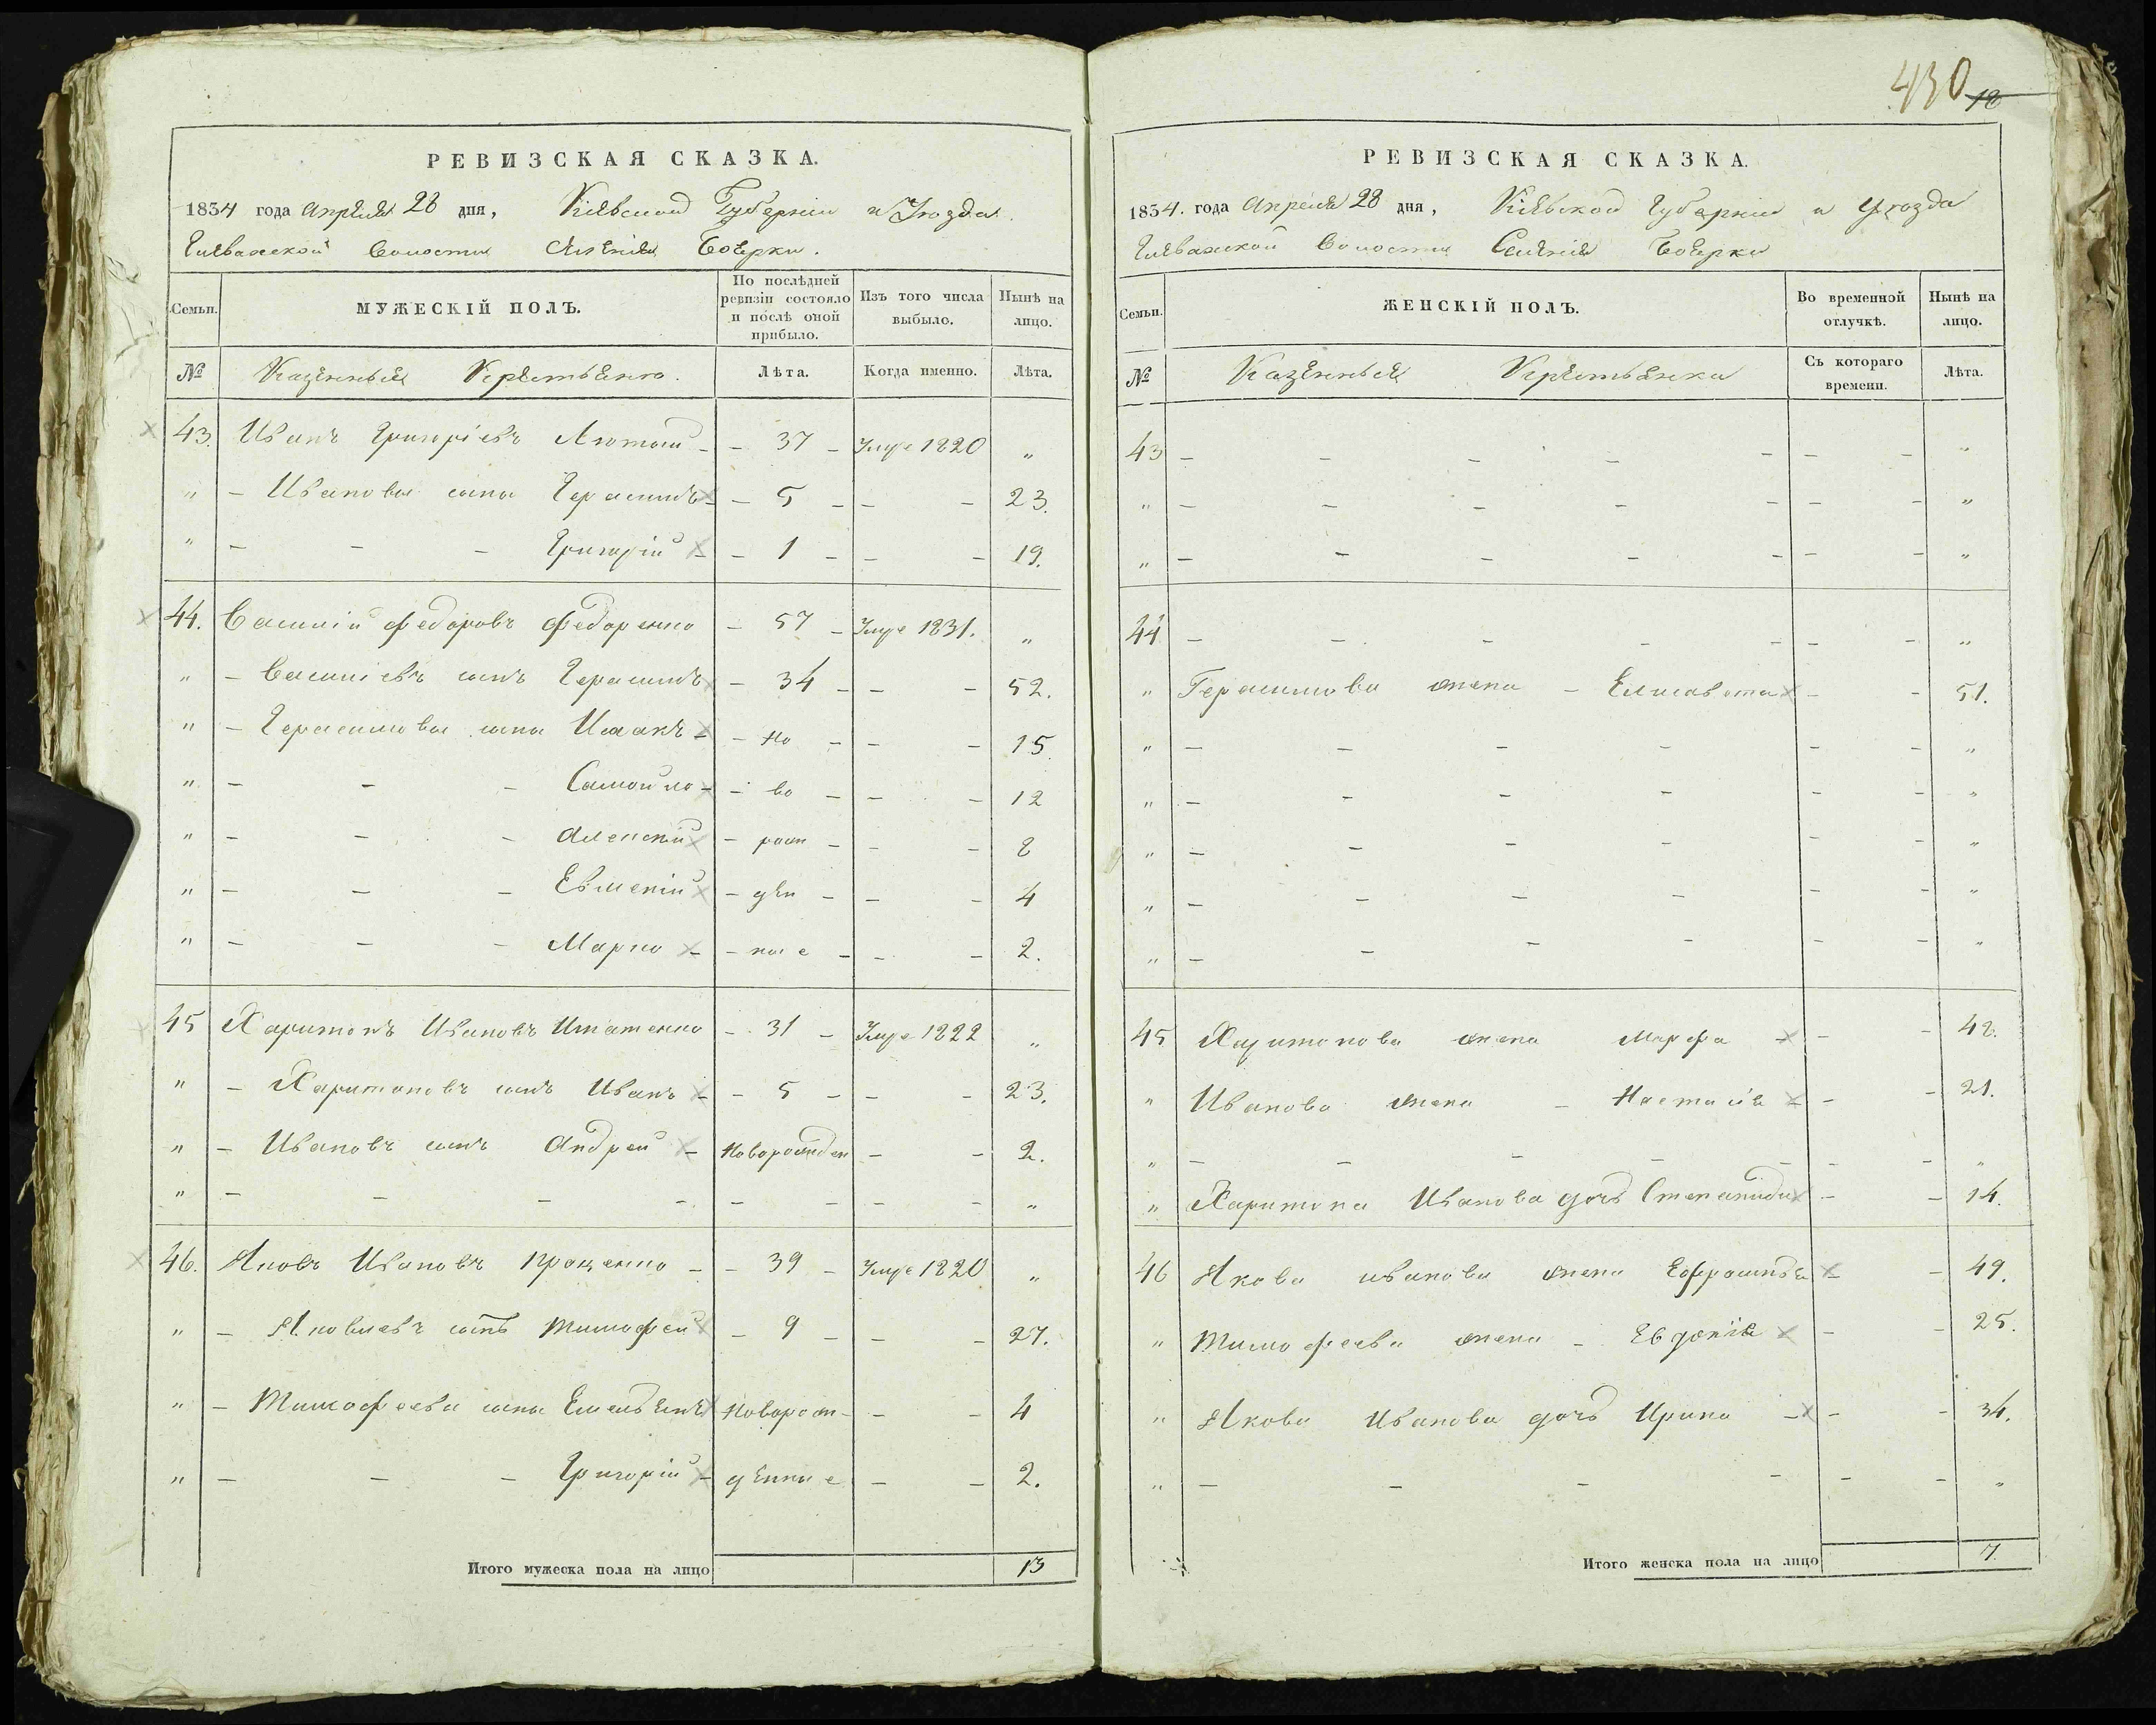 430 12
РЕВИЗСКАЯ СКАЗКА.
1834 года Апреля 28 дня, Кіевской Губерніи и Уѣзда.
Глеваской Волости Селенія Боерки.
Семьи. МУЖЕСКІЙ ПОЛЪ. По послѣдней ревизіи состояло и послѣ оной прибыло. Изъ того числа выбыло. Нынѣ на лицо.
№ Казенные Крестьяно. Лѣта. Когда именно. Лѣта.
43. Иванъ Григоріевъ Лютой - - 37 - Умре 1820 "
" - Ивановы сыны Герасимъ - - 5 - - - 23.
" - - - Григорій - - 1 - - - 19.
44. Василій Федоровъ Федоренко - 57 - Умре 1831. "
" - Василіевъ сынъ Герасимъ - 34 - - - 52.
" - Герасимовы сыны Исаакъ - - но - - - 15.
" - - - Самойло - - во - - - 12
" - - - Алексій - рож - - - 8
" - - - Евменій - ден - - - 4
" - - - Марко - - ные - - - 2.
45 Харитонъ Ивановъ - 31 - Умре 1822 "
" - Харитоновъ сынъ Иванъ - - 5 - - - 23.
" - Ивановъ сынъ Андрей - Новорожден - - 2.
" - - - - - - - - "
46. Яковъ Ивановъ - - 39 - Умре 1820 "
" - Яковлевъ сынъ Тимофей - 9 - - - 27.
" - Тимофеевы сыны Емельянъ Новорож - - - 4
" - - - Григорій - денные - - 2.
Итого мужеска пола на лицо 13
РЕВИЗСКАЯ СКАЗКА.
1834. года Апреля 28 дня, Кіевской Губерніи и Уѣзда
Глеваской Волости Селенія Боерки
Семьи. ЖЕНСКІЙ ПОЛЪ. Во временной отлучкѣ. Нынѣ на лицо.
№ Казенные Крестьянки Съ котораго времени. Лѣта.
43 - - - - - - "
" - - - - - - - "
" - - - - - - - "
44 - - - - - - - "
" Герасимова жена - Елисавета - - 51.
" - - - - - - "
" - - - - - - "
" - - - - - - "
" - - - - - - "
" - - - - - - "
45 Харитонова жена Марфа - - - 42.
" Иванова жена - Настасія - - - 21.
" - - - - - - - "
" Харитона Иванова дочь Степанида - - 14.
46 Якова Иванова жена Ефросинья - - 49.
" Тимофеева жена - Евдокія - - 25.
" Якова Иванова дочь Ирина - - - 34.
" - - - - - - "
Итого женска пола на лицо 7.